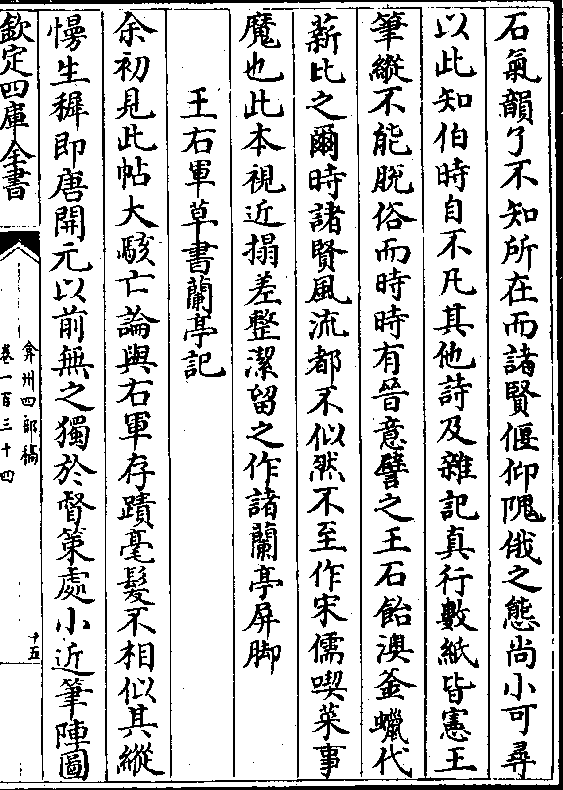 石氣韻了不知所在而諸賢偃仰隗俄之態尚小可尋
以此知伯時自不凡其他詩及雜記真行數紙皆憲王
筆縱不能脫俗而時時有晉意譬之王石飴澳釜蠟代
薪比之爾時諸賢風流都不似然不至作宋儒喫菜事
魔也此本視近搨差整潔留之作諸蘭亭屏脚
王右軍草書蘭亭記
余初見此帖大駭亡論與右軍存蹟毫髮不相似其縱
慢生穉即唐開元以前無之獨於督策處小近筆陣圖
欽定四庫全書
弇州四部稿
卷一百三十四
十五